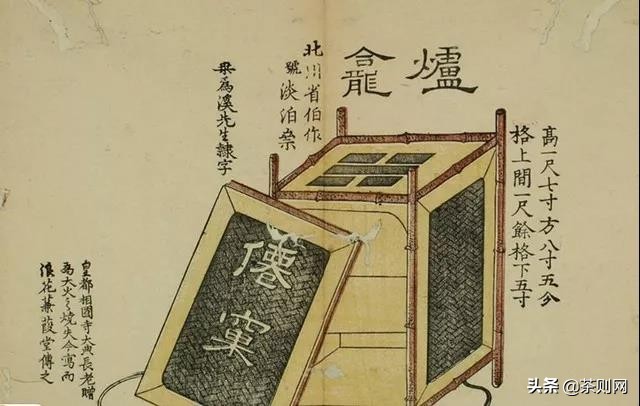 爐龕
高一尺七寸方八寸五分
格上間一尺餘格下五寸
北川省伯作
號淡泊
為溪先生隸字
僊窠
皇都相國寺大典長老贈
為大火々燒失今寫而
浪花蒹葭堂傳之
头条 @茶则网